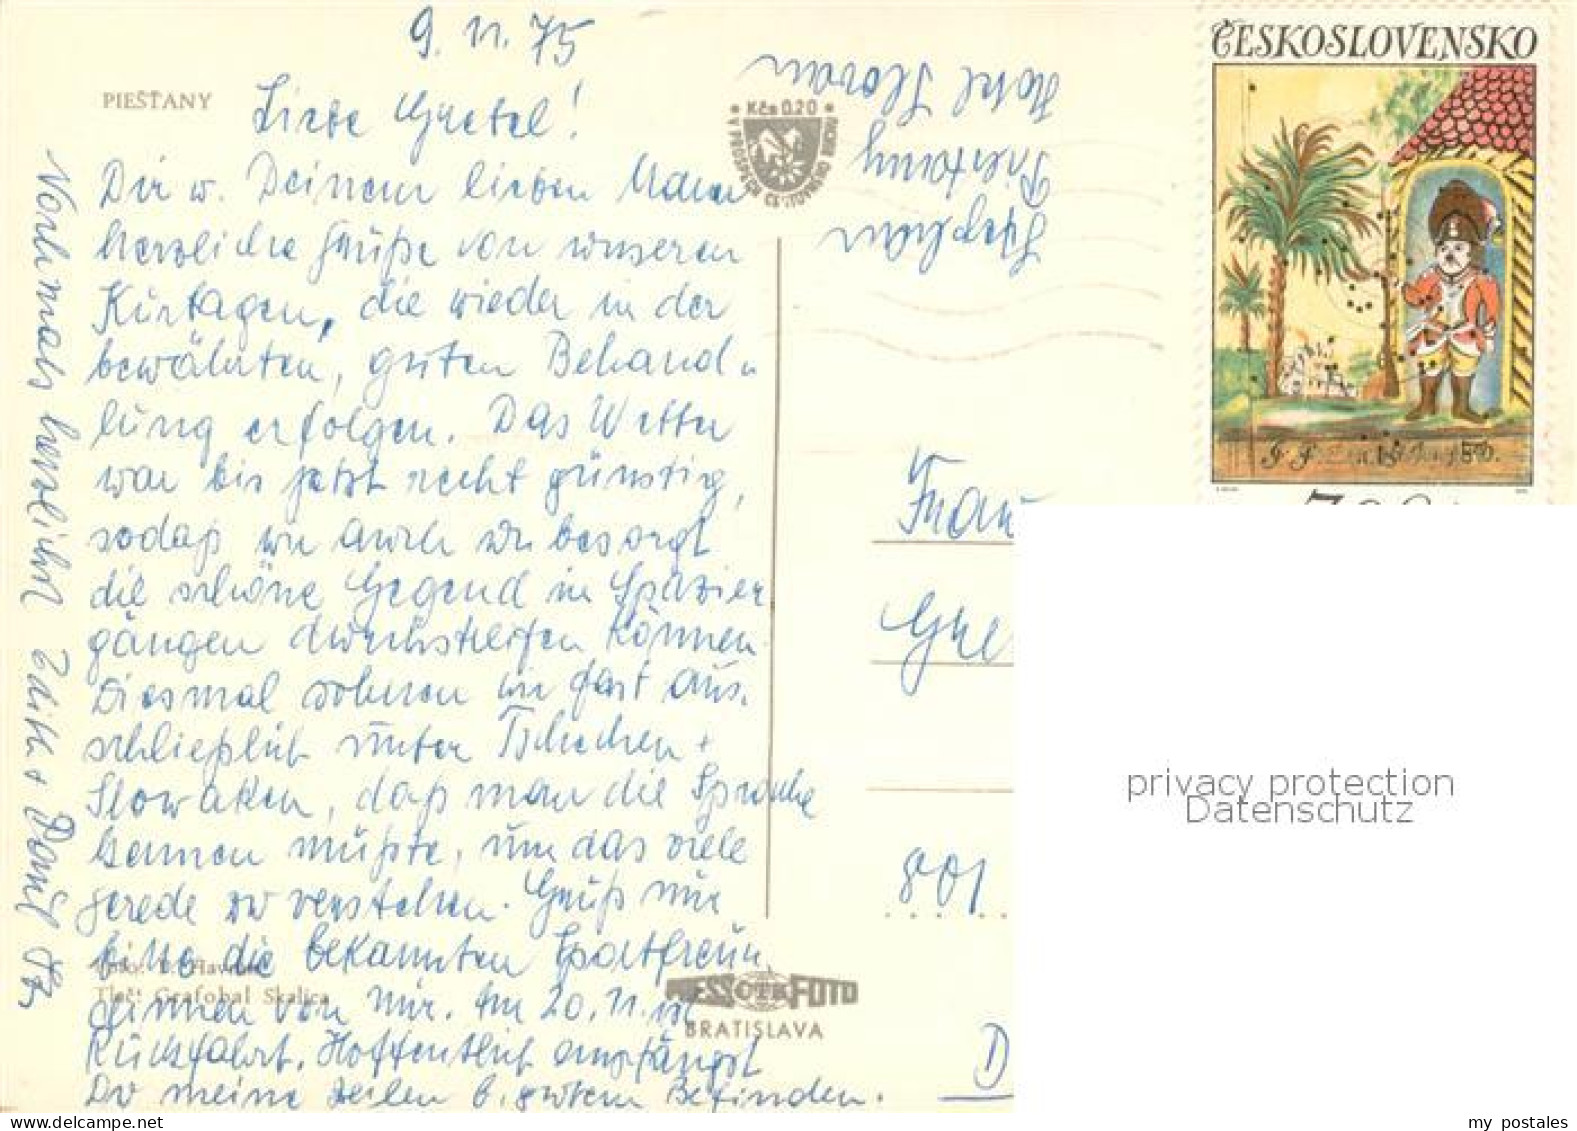 9. 11. 75
PIEŠŤANY
Liebe Gretel!
Dir u. Deinem lieben Mann
herzliche Grüße von unseren
Kurtagen, die wieder in der
bewährten, guten Behand
lung erfolgen. Das Wetter
war bis jetzt recht günstig,
sodaß wir auch unbesorgt
die schöne Gegend in Spazier
gängen durchstreifen können.
Diesmal wohnen wir fast aus.
schließlich unter Tschechen +
Slowaken, daß man die Sprache
kennen müßte, um das viele
Gerede zu verstehen. Grüß mir
bitte die bekannten Sportfreun
dinnen von mir. Am 20. 11. ist
Rückfahrt. Hoffentlich empfängst
Du meine Zeilen b. gutem Befinden.
Nochmals herzlichst Edith +
Foto:
Tlač: Grafobal Skalica
Kčs 0.20
Hotel Slovan
Piestany
ČESKOSLOVENSKO
Frau
801
D
PRESSFOTO
ČTK
BRATISLAVA
privacy protection
Datenschutz
my postales